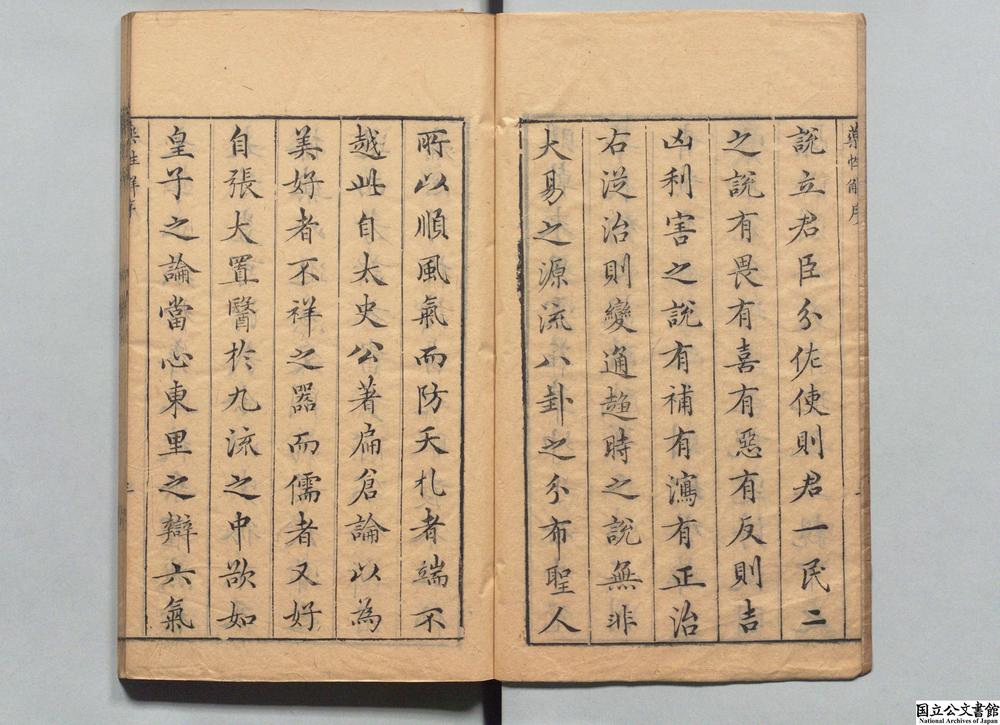 藥性解序
說立君臣分佐使則君一民二
之說有畏有喜有惡有反則吉
凶利害之說有補有瀉有正治
右從治則變通趨時之說無非
大易之源流八卦之分布聖人
所以順風氣而防夭札者端不
越此自太史公著扁倉論以為
美好者不祥之器而儒者又好
自張大置醫於九流之中欲如
皇子之論當心東里之辯六氣
国立公文書館
National Archives of Japan